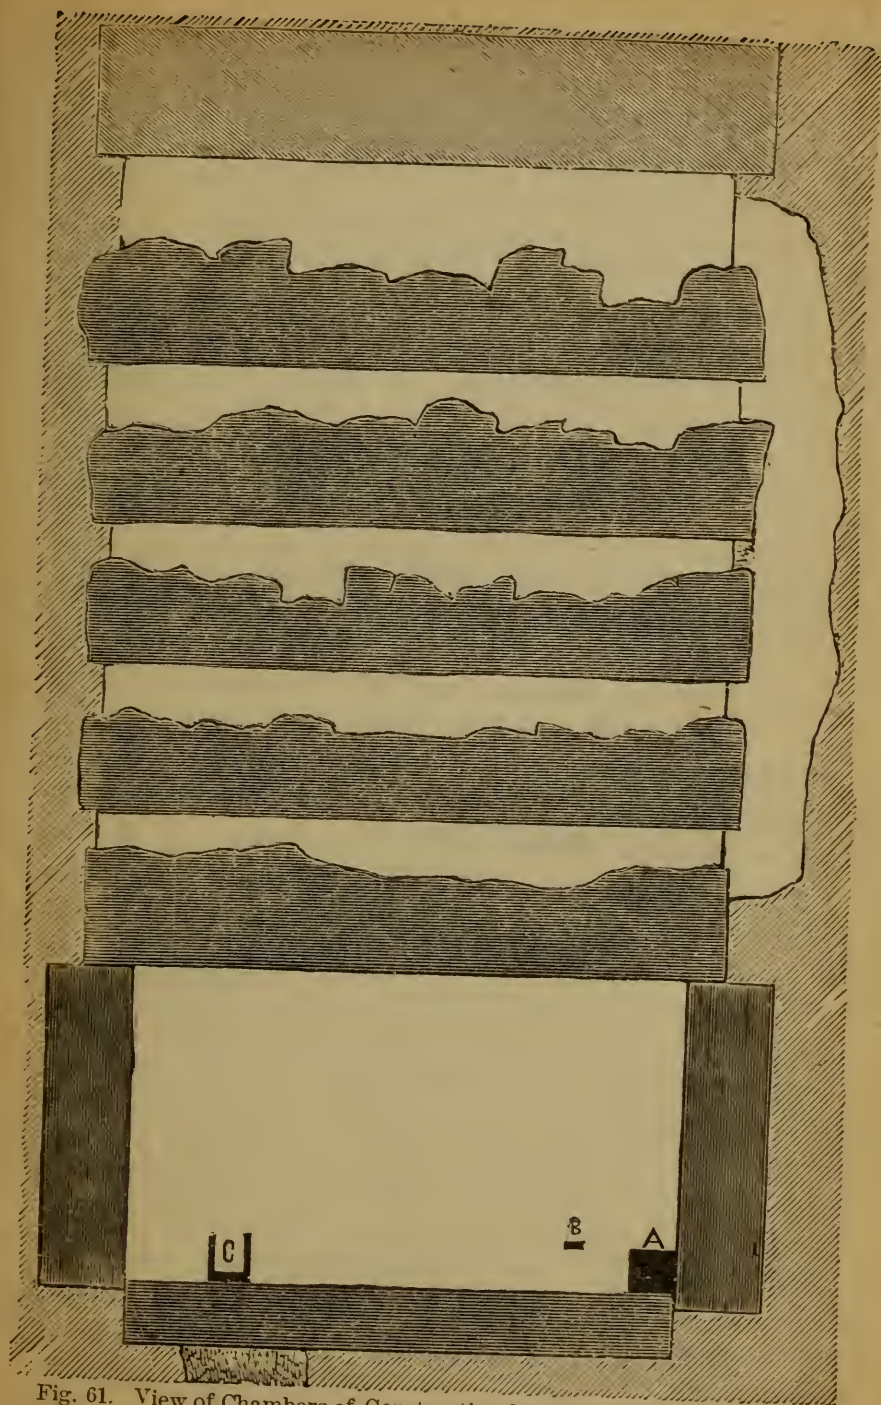 B
A
C
Fig. 61. View of Chambers of